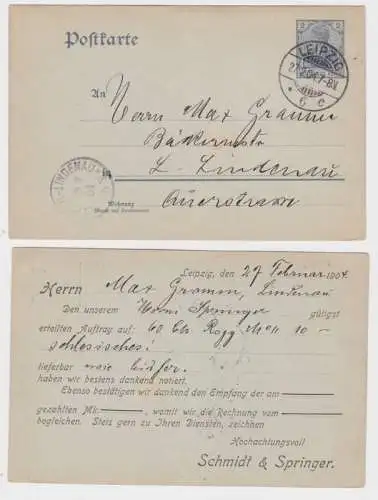 Postkarte
2
LEIPZIG
6 e
An
Herrn Max Gramm
Bäckermstr
L. Lindenau
LINDENAU
Wohnung
Leipzig, den 27 Februar 1904.
Herrn Max Gramm, Lindenau
Den unserem Herrn Springer gütigst
erteilten Auftrag auf: 60 Ctr. Rogg 10 –
schlesisches!
lieferbar
haben wir bestens dankend notiert.
Ebenso bestätigen wir dankend den Empfang der am
gezahlten Mk: , womit wir die Rechnung vom
begleichen. Stets gern zu Ihren Diensten, zeichnen
Hochachtungsvoll
Schmidt & Springer.